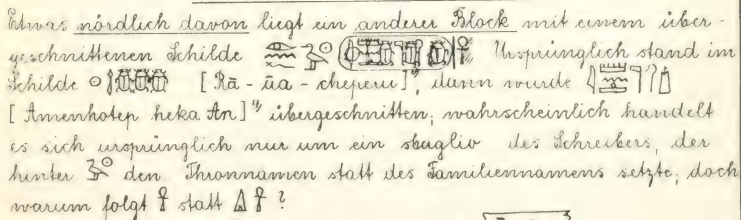 Etwas nördlich davon liegt ein anderer Block mit einem über-
geschnittenen Schilde Ursprünglich stand im
Schilde [Rā - āa - cheperu], dann wurde
[Amenhotep heka An] übergeschnitten; wahrscheinlich handelt
es sich ursprünglich nur um ein sbaglio des Schreibers, der
hinter den Thronnamen statt des Familiennamens setzte; doch
warum folgt 𓋹 statt 𓏙 𓋹 ?